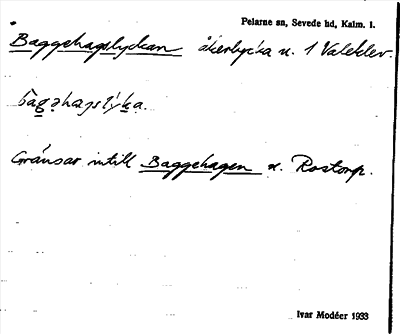 Pelarne sn, Sevede hd, Kalm. l.
Baggehagslyckan åkerlycka u. 1 Valeklev.
Gränsar intill Baggehagen u. Rostorp.
Ivar Modéer 1933